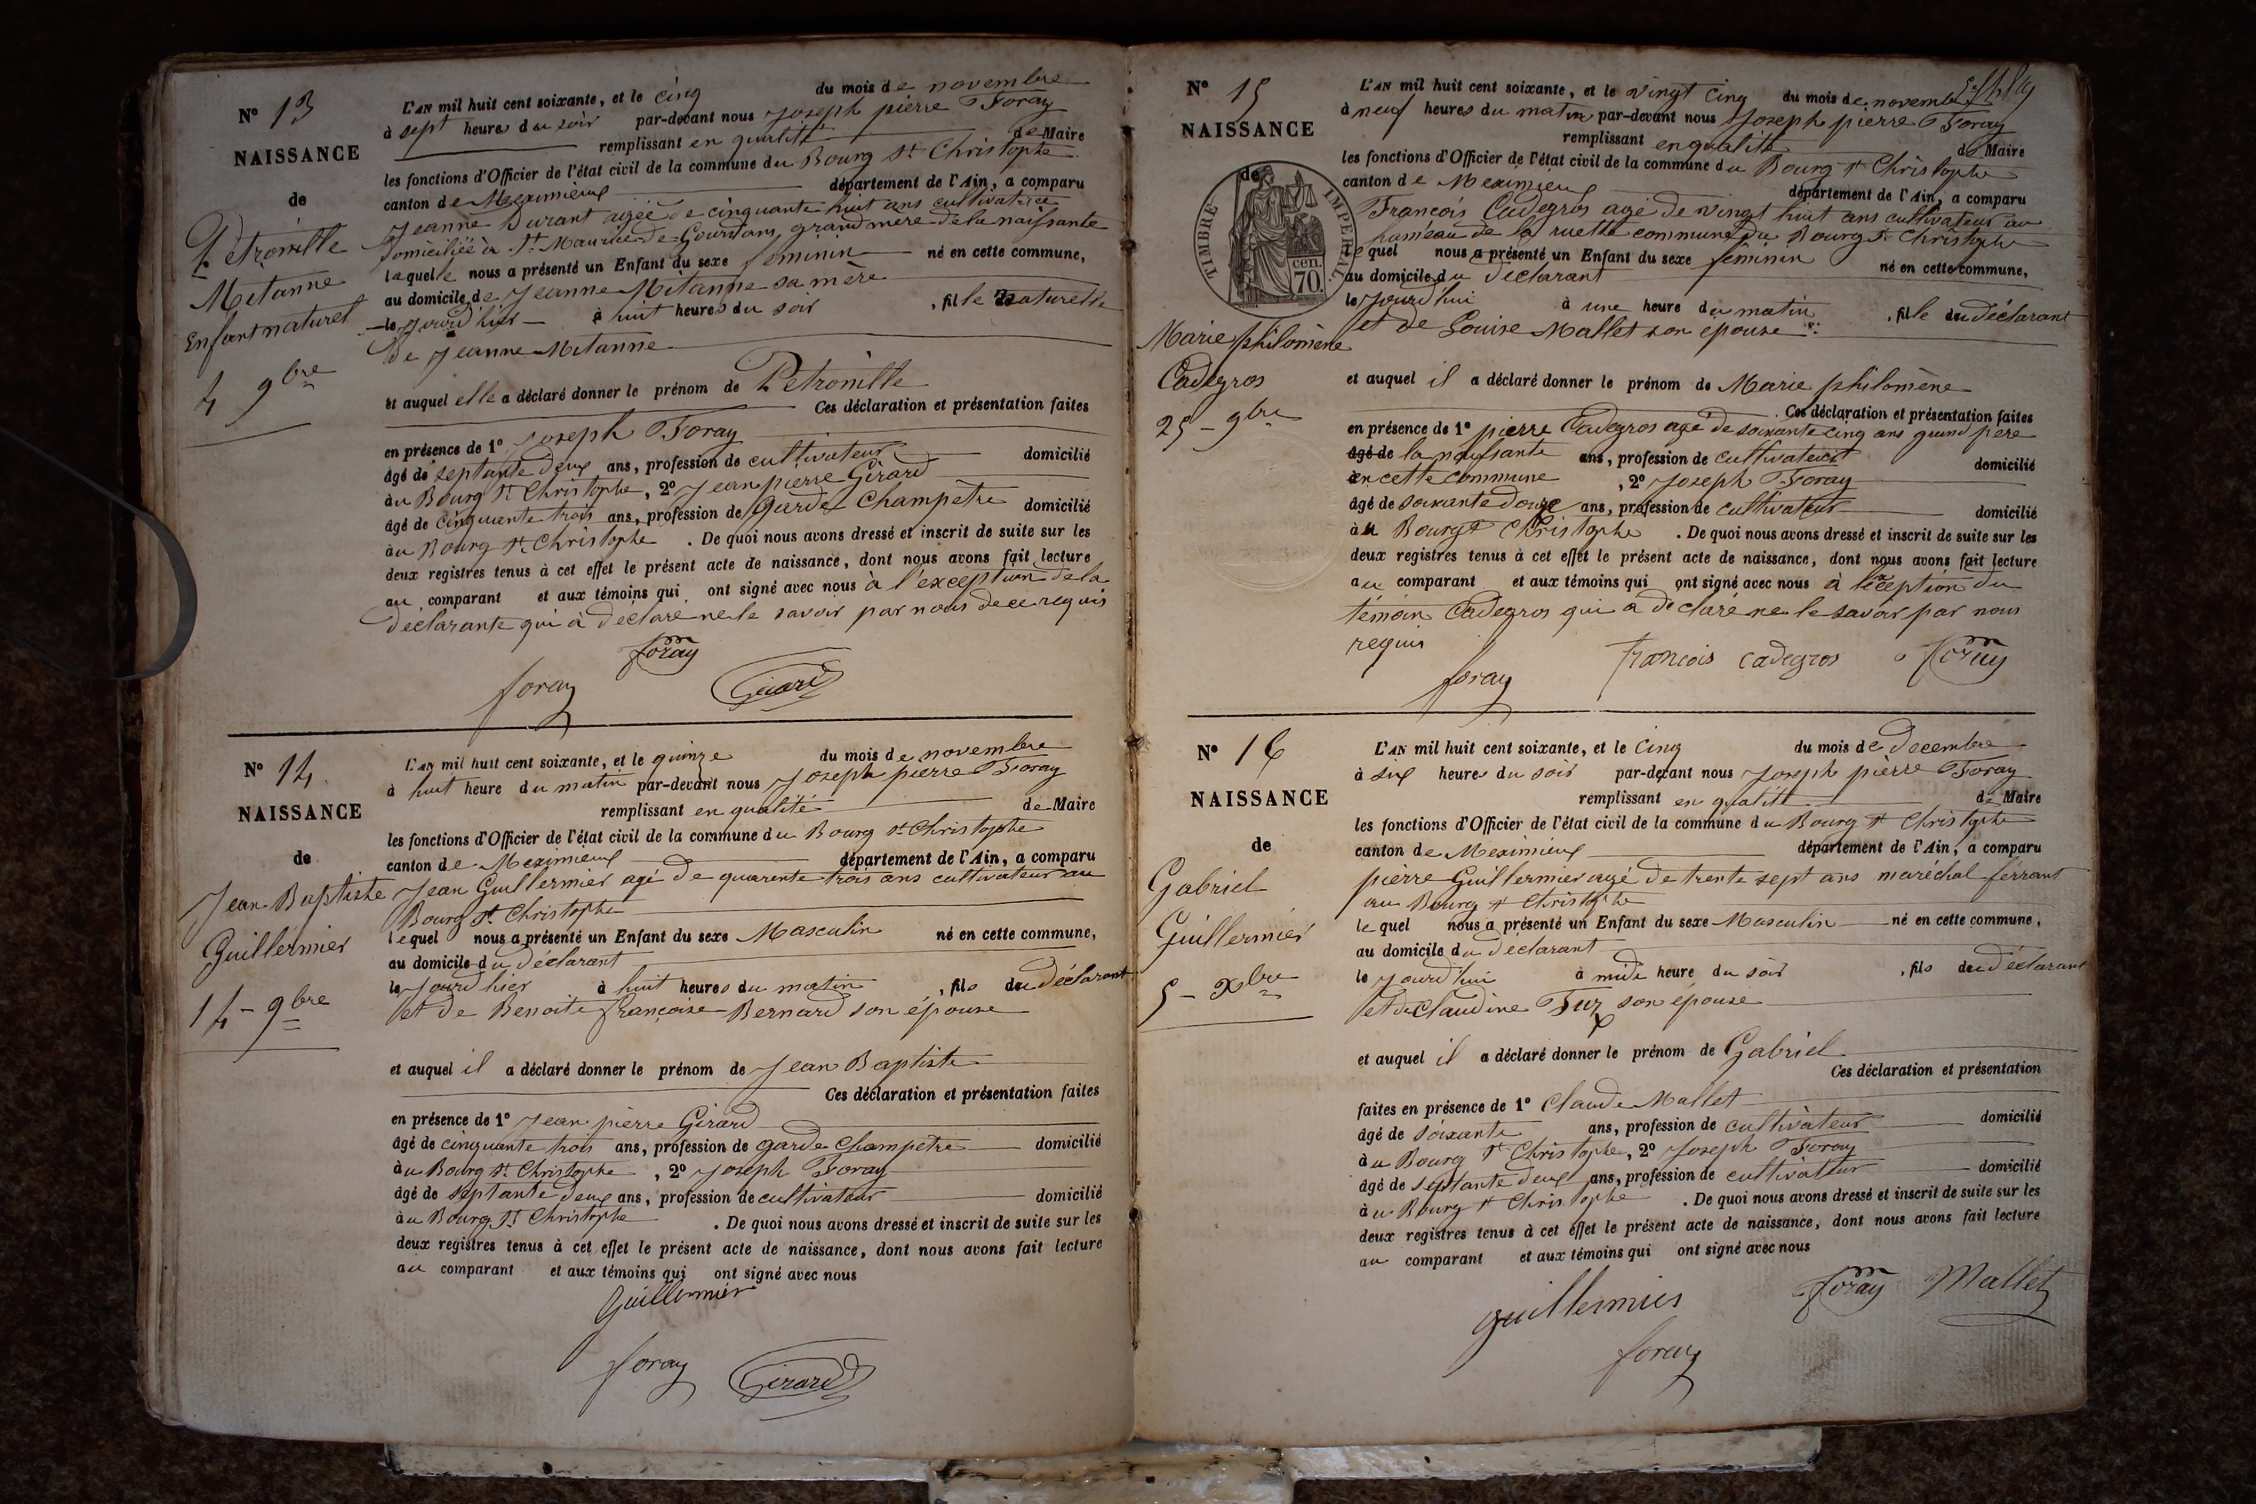 N° 13
NAISSANCE
de
Pétronille
Mitanne
Enfant naturel
4 9bre
L'AN mil huit cent soixante, et le cinq du mois de novembre
à sept heures du soir par-devant nous Joseph pierre Foray
remplissant en qualité de Maire
les fonctions d'Officier de l'état civil de la commune du Bourg St Christophe
canton de Meximieux département de l'Ain, a comparu
Jeanne Durant agée de cinquante huit ans cultivatrice
domiciliée à St Maurice de Gourdans, grand mère de la naissante
laquelle nous a présenté un Enfant du sexe feminin né en cette commune,
au domicile de Jeanne Mitanne sa mère
le jourd'hier à huit heures du soir , fille naturelle
de Jeanne Mitanne
et auquel elle a déclaré donner le prénom de Pétronille
Ces déclaration et présentation faites
en présence de 1° Joseph Foray
âgé de septante deux ans, profession de cultivateur domicilié
au Bourg St Christophe, 2° Jean pierre Girard
âgé de cinquante trois ans, profession de garde Champêtre domicilié
au Bourg St Christophe . De quoi nous avons dressé et inscrit de suite sur les
deux registres tenus à cet effet le présent acte de naissance, dont nous avons fait lecture
au comparant et aux témoins qui ont signé avec nous à l'exception de la
declarante qui à déclaré ne le savoir par nous de ce requis
foray
foray Girard
N° 14
NAISSANCE
de
Jean Baptiste
Guillermier
14 - 9bre
L'AN mil huit cent soixante, et le quinze du mois de novembre
à huit heure du matin par-devant nous Joseph pierre Foray
remplissant en qualité de Maire
les fonctions d'Officier de l'état civil de la commune du Bourg St Christophe
canton de Meximieux département de l'Ain, a comparu
Jean Guillermier agé de quarente trois ans cultivateur au
Bourg St Christophe
lequel nous a présenté un Enfant du sexe Masculin né en cette commune,
au domicile du déclarant
le jourd'hier à huit heures du matin , fils du déclarant
et de Benoite françoise Bernard son épouse
et auquel il a déclaré donner le prénom de Jean Baptiste
Ces déclaration et présentation faites
en présence de 1° Jean pierre Girard
âgé de cinquante trois ans, profession de garde Champetre domicilié
au Bourg St Christophe , 2° Joseph Foray
âgé de septante deux ans, profession de cultivateur domicilié
au Bourg St Christophe . De quoi nous avons dressé et inscrit de suite sur les
deux registres tenus à cet effet le présent acte de naissance, dont nous avons fait lecture
au comparant et aux témoins qui ont signé avec nous
Guillermier
foray Girard
N° 15
NAISSANCE
de
TIMBRE IMPERIAL
70 cen.
Marie philomène
Cadegros
25 - 9bre
L'AN mil huit cent soixante, et le vingt cinq du mois de novembre
à neuf heures du matin par-devant nous Joseph pierre Foray
remplissant en qualité de Maire
les fonctions d'Officier de l'état civil de la commune du Bourg St Christophe
canton de Meximieux département de l'Ain, a comparu
François Cadegros agé de vingt huit ans cultivateur au
hameau de la ruette commune du Bourg St Christophe
lequel nous a présenté un Enfant du sexe feminin né en cette commune,
au domicile du déclarant
le jourd'hui à une heure du matin , fille du déclarant
et de Louise Mallet son épouse
et auquel il a déclaré donner le prénom de Marie philomène
Ces déclaration et présentation faites
en présence de 1° pierre Cadegros agé de soixante cinq ans grand père
âgé de la naissante ans, profession de cultivateur domicilié
en cette commune , 2° Joseph Foray
âgé de soixante douze ans, profession de cultivateur domicilié
au Bourg St Christophe . De quoi nous avons dressé et inscrit de suite sur les
deux registres tenus à cet effet le présent acte de naissance, dont nous avons fait lecture
au comparant et aux témoins qui ont signé avec nous à l'exception du
témoin Cadegros qui a déclaré ne le savoir par nous
requis
foray françois cadegros foray
N° 16
NAISSANCE
de
Gabriel
Guillermier
5 - Xbre
L'AN mil huit cent soixante, et le cinq du mois de decembre
à six heures du soir par-devant nous Joseph pierre Foray
remplissant en qualité de Maire
les fonctions d'Officier de l'état civil de la commune du Bourg St Christophe
canton de Meximieux département de l'Ain, a comparu
pierre Guillermier agé de trente sept ans maréchal ferrant
au Bourg St Christophe
lequel nous a présenté un Enfant du sexe Masculin né en cette commune,
au domicile du déclarant
le jourd'hui à midi heure du soir , fils du déclarant
et de Claudine son épouse
et auquel il a déclaré donner le prénom de Gabriel
Ces déclaration et présentation
faites en présence de 1° Claude Mallet
âgé de soixante ans, profession de cultivateur domicilié
au Bourg St Christophe, 2° Joseph Foray
âgé de septante deux ans, profession de cultivateur domicilié
au Bourg St Christophe . De quoi nous avons dressé et inscrit de suite sur les
deux registres tenus à cet effet le présent acte de naissance, dont nous avons fait lecture
au comparant et aux témoins qui ont signé avec nous
guillermier foray Mallet
foray